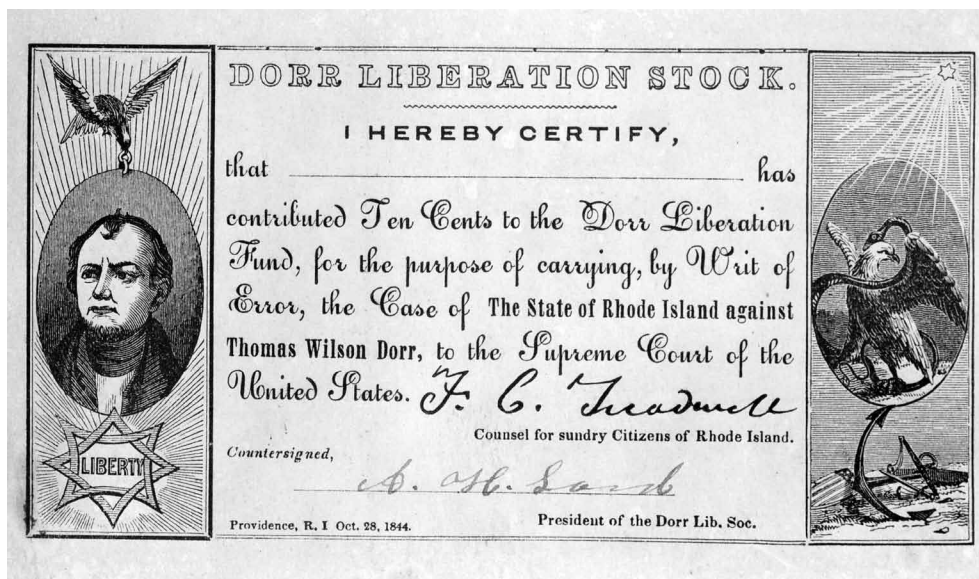 DORR LIBERATION STOCK.
I HEREBY CERTIFY,
that has
contributed Ten Cents to the Dorr Liberation
Fund, for the purpose of carrying, by Writ of
Error, the Case of The State of Rhode Island against
Thomas Wilson Dorr, to the Supreme Court of the
United States. F. C. Treadwell
Counsel for sundry Citizens of Rhode Island.
Countersigned,
A. H.
President of the Dorr Lib. Soc.
Providence, R. I Oct. 28, 1844.
LIBERTY